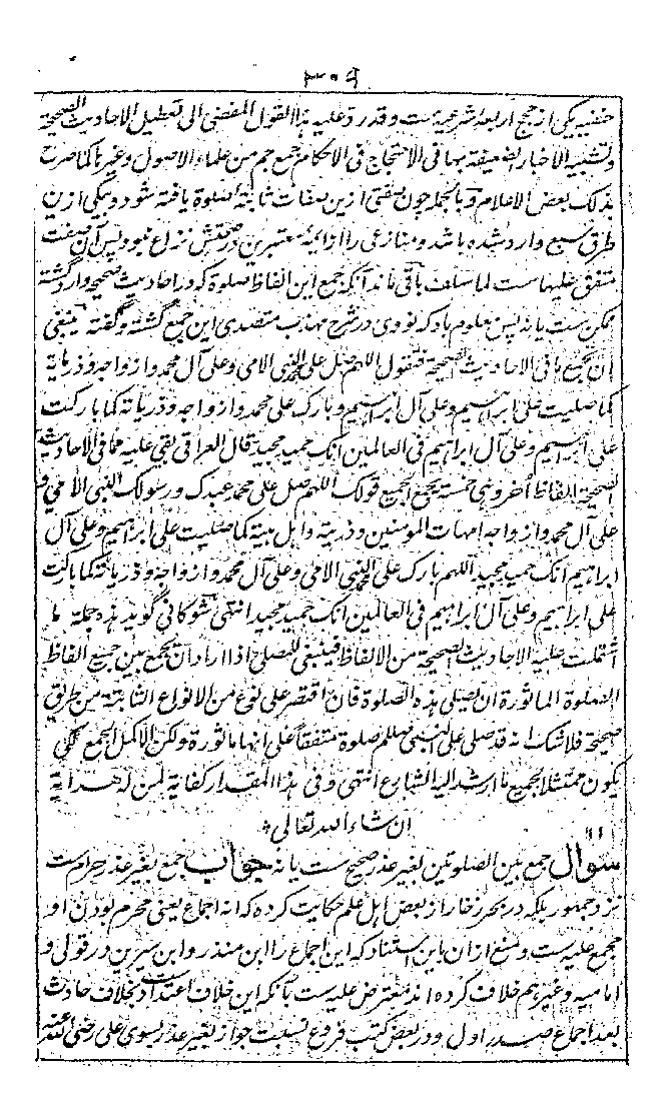 ۳۰۹
حنفیه یکی از حجج اربعه شرعیه ست وقد رد علیه هذا القول المفضی الی تعطیل الاحادیث الصحیحة
وتشبیه الاخبار الضعیفة بها فی الاحتجاج فی الاحکام جمع جم من علماء الاصول وغیرها کما صرح
بذلک بعض الاعلام وبالجمله چون صفتی ازین صفات ثابتهٔ صلوة یافته شود وبیکی ازین
طرق سبع وارد شده باشد ومنازعی را از ایمهٔ معتبرین در صحتش نزاع نبود پس آن صفت
متفق علیهاست لما سلف باقی ماند آنکه جمع این الفاظ صلوة که در احادیث صحیحه وارد گشته
ممکن ست یا نه پس معلوم باد که نووی در شرح مهذب متصدی این جمع گشته وگفته ینبغی
ان تجمع ما فی الاحادیث الصحیحة فتقول اللهم صل علی محمد النبی الامی وعلی آل محمد وازواجه وذریاته
کما صلیت علی ابراهیم وعلی آل ابراهیم وبارک علی محمد وازواجه وذریاته کما بارکت
علی ابراهیم وعلی آل ابراهیم فی العالمین انک حمید مجید قال العراقی بقی علیه مما فی الاحادیث
الصحیحة الفاظ أخر وهی خمسة یجمع الجمیع قولک اللهم صل علی محمد عبدک ورسولک النبی الامی و
علی آل محمد وازواجه امهات المومنین وذریته واهل بیته کما صلیت علی ابراهیم وعلی آل
ابراهیم انک حمید مجید اللهم بارک علی محمد النبی الامی وعلی آل محمد وازواجه وذریاته کما بارکت
علی ابراهیم وعلی آل ابراهیم فی العالمین انک حمید مجید انتهی شوکانی گوید هذه جملة ما
اشتملت علیه الاحادیث الصحیحة من الالفاظ فینبغی للمصلی اذا اراد ان یجمع بین جمیع الفاظ
الصلوة الماثورة ان یصلی بهذه الصلوة فان اقتصر علی نوع من الانواع الثابتة من طریق
صحیحة فلاشک انه قد صلی علی النبی صللم صلوة متفقا علی انها ماثورة ولکن الاکمل الجمع لکی
یکون ممتثلا لجمیع ما ارشد الیه الشارع انتهی وفی هذا المقدار کفایة لمن له هدایة
ان شاء الله تعالی
سوال جمع بین الصلوتین بغیر عذر صحیح ست یا نه جواب جمع بغیر عذر حرام ست
نزد جمهور بلکه در بحر زخار از بعض اهل علم حکایت کرده که انه اجماع یعنی محرم بودن او
مجمع علیه ست ومنع از ان باین استناد که این اجماع را ابن منذر وابن سیرین در قولی و
امامیه وغیرهم خلاف کرده اند معترض علیه ست بآنکه این خلاف اعتداد بخلاف حادث
بعد اجماع صدر اول ودر بعض کتب فروع نسبت جواز بغیر عذر بسوی علی رضی الله عنه